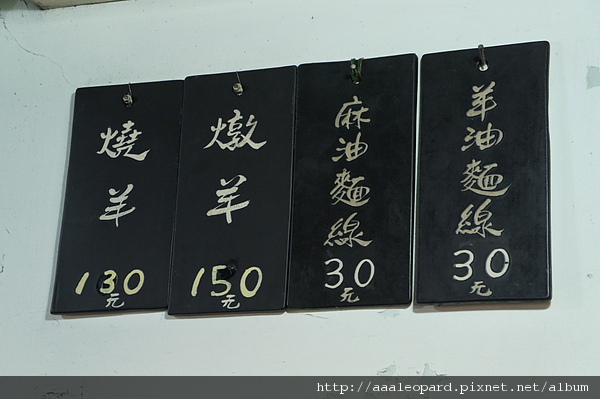 燒羊
130元
燉羊
150元
麻油麵線
30元
羊油麵線
30元
http://aaaleopard.pixnet.net/album